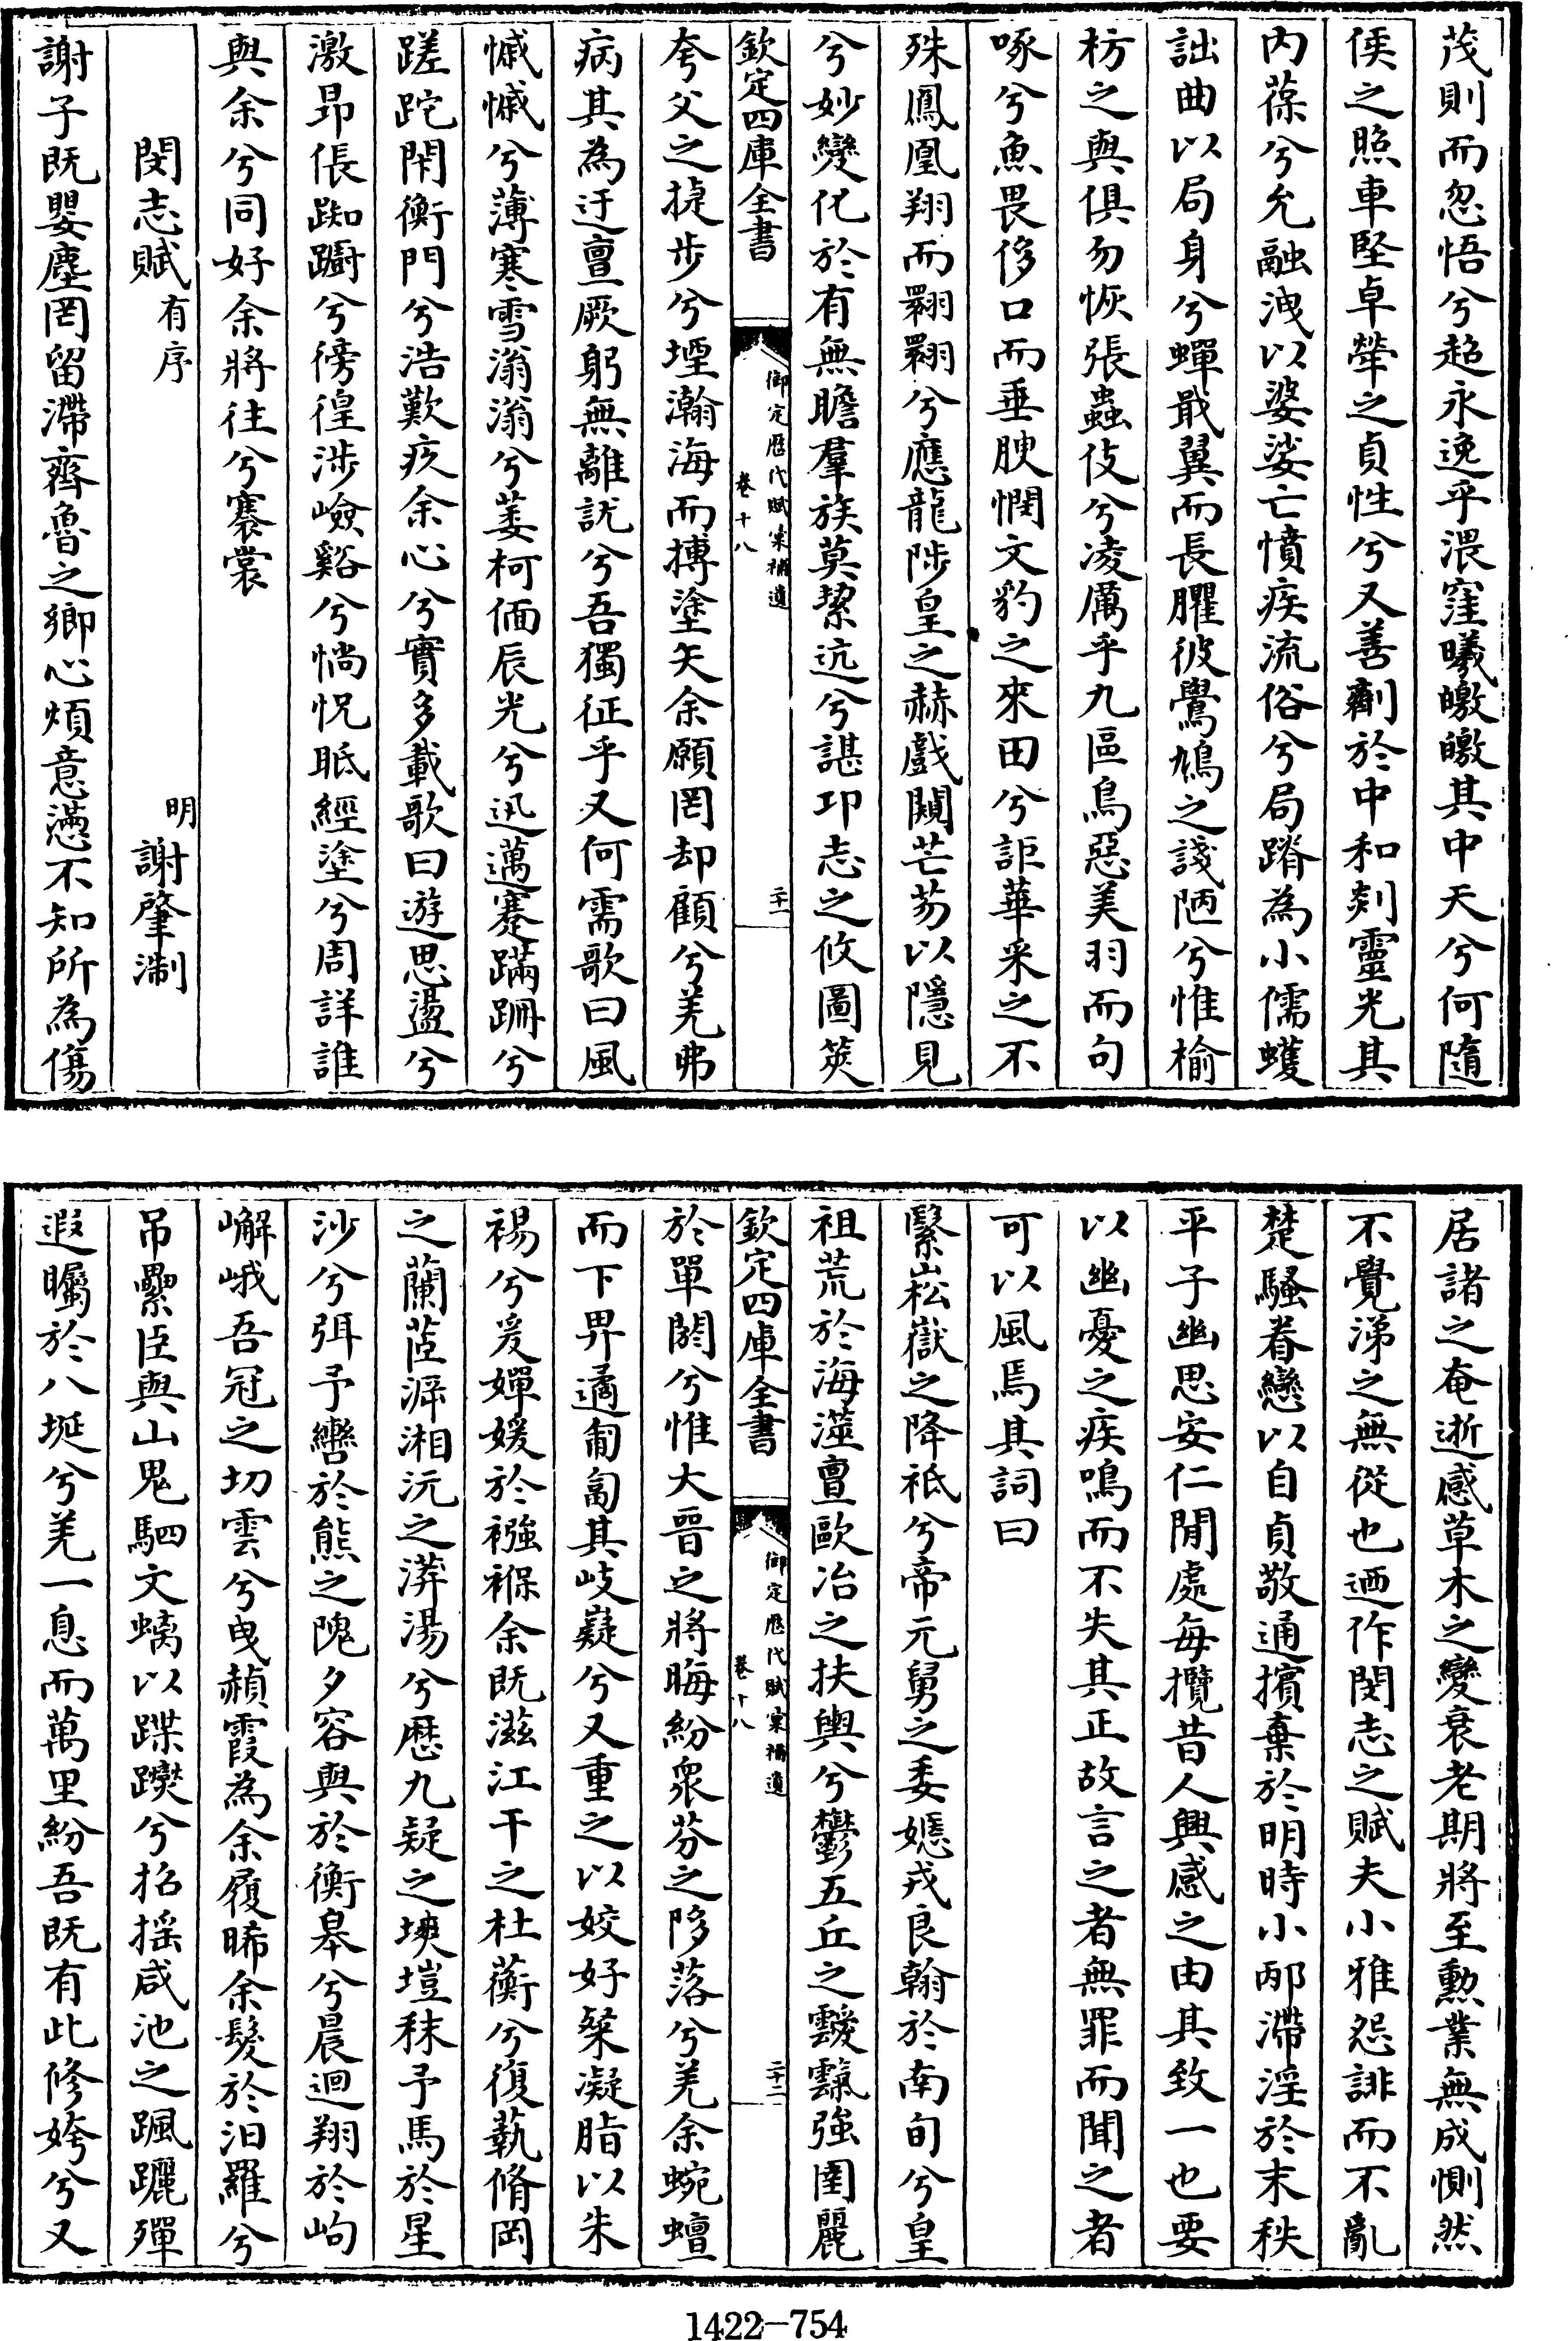 茂則而忽悟兮超永逸乎渨窪曦皦皦其中天兮何隨
侯之照車堅卓犖之貞性兮又善劘於中和剡靈光其
内葆兮允融洩以婆娑亡憤疾流俗兮局蹐為小儒蠖
詘曲以局身兮蟬戢翼而長臞彼鷽鳩之諓陋兮惟榆
枋之與俱勿恢張蟲伎兮凌厲乎九區鳥惡美羽而句
啄兮魚畏侈口而垂腴憫文豹之來田兮詎華采之不
殊鳳凰翔而翾翾兮應龍陟皇之赫戲閴芒芴以隱見
兮妙變化於有無瞻羣族莫絜迒兮諶卭志之攸圖筴
欽定四庫全書
御定歷代賦彙補遺
卷十八
二十一
夸父之捷步兮堙瀚海而摶塗矢余願罔却顧兮羌弗
病其為迂亶厥躬無離訧兮吾獨征乎又何需歌曰風
慽慽兮薄寒雪滃滃兮萎柯偭辰光兮迅邁蹇蹣跚兮
蹉跎閇衡門兮浩歎疚余心兮實多載歌曰遊思盪兮
激昂倀踟躕兮徬徨涉嶮谿兮惝怳眡經塗兮周詳誰
與余兮同好余將往兮褰裳
閔志賦有序
明謝肇淛
謝子既嬰塵罔留滯齊魯之鄉心煩意懣不知所為傷
居諸之奄逝感草木之變衰老期將至勲業無成惻然
不覺涕之無從也迺作閔志之賦夫小雅怨誹而不亂
楚騷眷戀以自貞敬通擯棄於明時小邴滯淫於末秩
平子幽思安仁閒處每攬昔人興感之由其致一也要
以幽憂之疾鳴而不失其正故言之者無罪而聞之者
可以風焉其詞曰
繄崧嶽之降祗兮帝元舅之委嬺戎良翰於南甸兮皇
祖荒於海澨亶歐冶之扶輿兮鬱五丘之靉靅強圉麗
欽定四庫全書
御定歷代賦彙補遺
卷十八
二十二
於單閼兮惟大晉之將晦紛衆芬之陊落兮羌余蜿蟺
而下畀遹匍匐其岐嶷兮又重之以姣好粲凝脂以朱
裼兮爰嬋媛於襁褓余既滋江干之杜蘅兮復蓺脩岡
之蘭茝泝湘沅之漭湯兮歷九疑之塽塏秣予馬於星
沙兮弭予轡於熊之隗夕容與於衡皋兮晨迴翔於岣
嶰峨吾冠之切雲兮曳赬霞為余履晞余髮於汨羅兮
吊纍臣與山鬼駟文螭以蹀躞兮招摇咸池之𨄛躧殫
遐矚於八埏兮羌一息而萬里紛吾既有此修姱兮又
1422-754